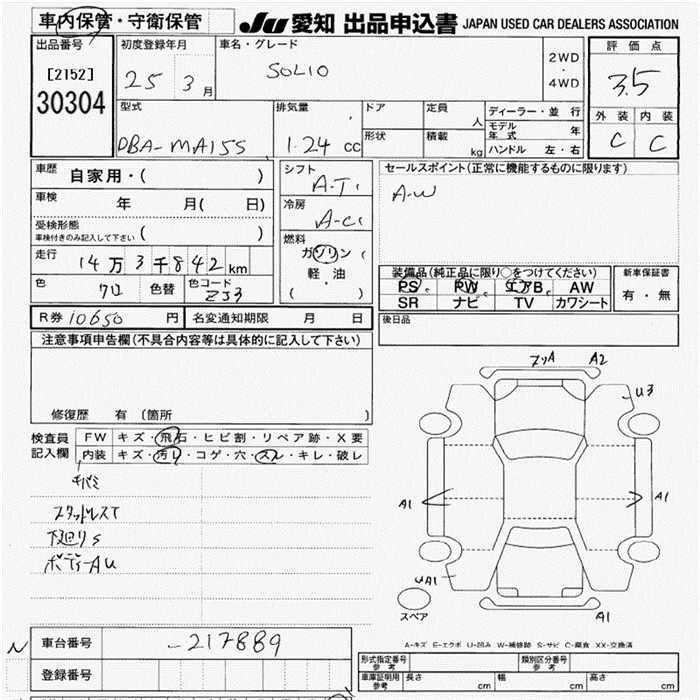 車内保管・守衛保管 JU 愛知 出品申込書 JAPAN USED CAR DEALERS ASSOCIATION
出品番号 初度登録年月 車名・グレード 評価点
[2152] 25 3月 SOLIO 2WD・4WD 3.5
30304
型式 排気量 ドア 定員 人 ディーラー・並行 外装 内装
DBA-MA15S 1.24 cc 形状 積載 kg モデル年式 年 C C
ハンドル 左・右
車歴 自家用・( ) シフト A-T セールスポイント(正常に機能するものに限ります)
車検 年 月( 日) 冷房 A-C A-W
受検形態 ( )
車検付きのみ記入して下さい
燃料 ガソリン
走行 14万3千842km 軽・油
( )
装備品(純正品に限り○をつけてください) 新車保証書
PS PW エアB AW 有・無
SR ナビ TV カワシート
色 クロ 色替 色コード ZJ3
R券 10650 円 名変通知期限 月 日 後日品
注意事項申告欄(不具合内容等は具体的に記入して下さい)
修復歴 有 (箇所 )
検査員記入欄 FW キズ・飛石・ヒビ割・リペア跡・X要
内装 キズ・汚レ・コゲ・穴・スレ・キレ・破レ
キバミ
スタッドレスT
下廻りS
ボディーAU
ヌリA A2
U3
A1 A1
UA1
スペア A1
A-キズ E-エクボ U-凹み W-補修跡 S-サビ C-腐食 XX-交換済
車台番号 -217889
登録番号
形式指定番号 参考 類別区分番号 参考
車庫証明用 参考 長さ cm 幅 cm 高さ cm